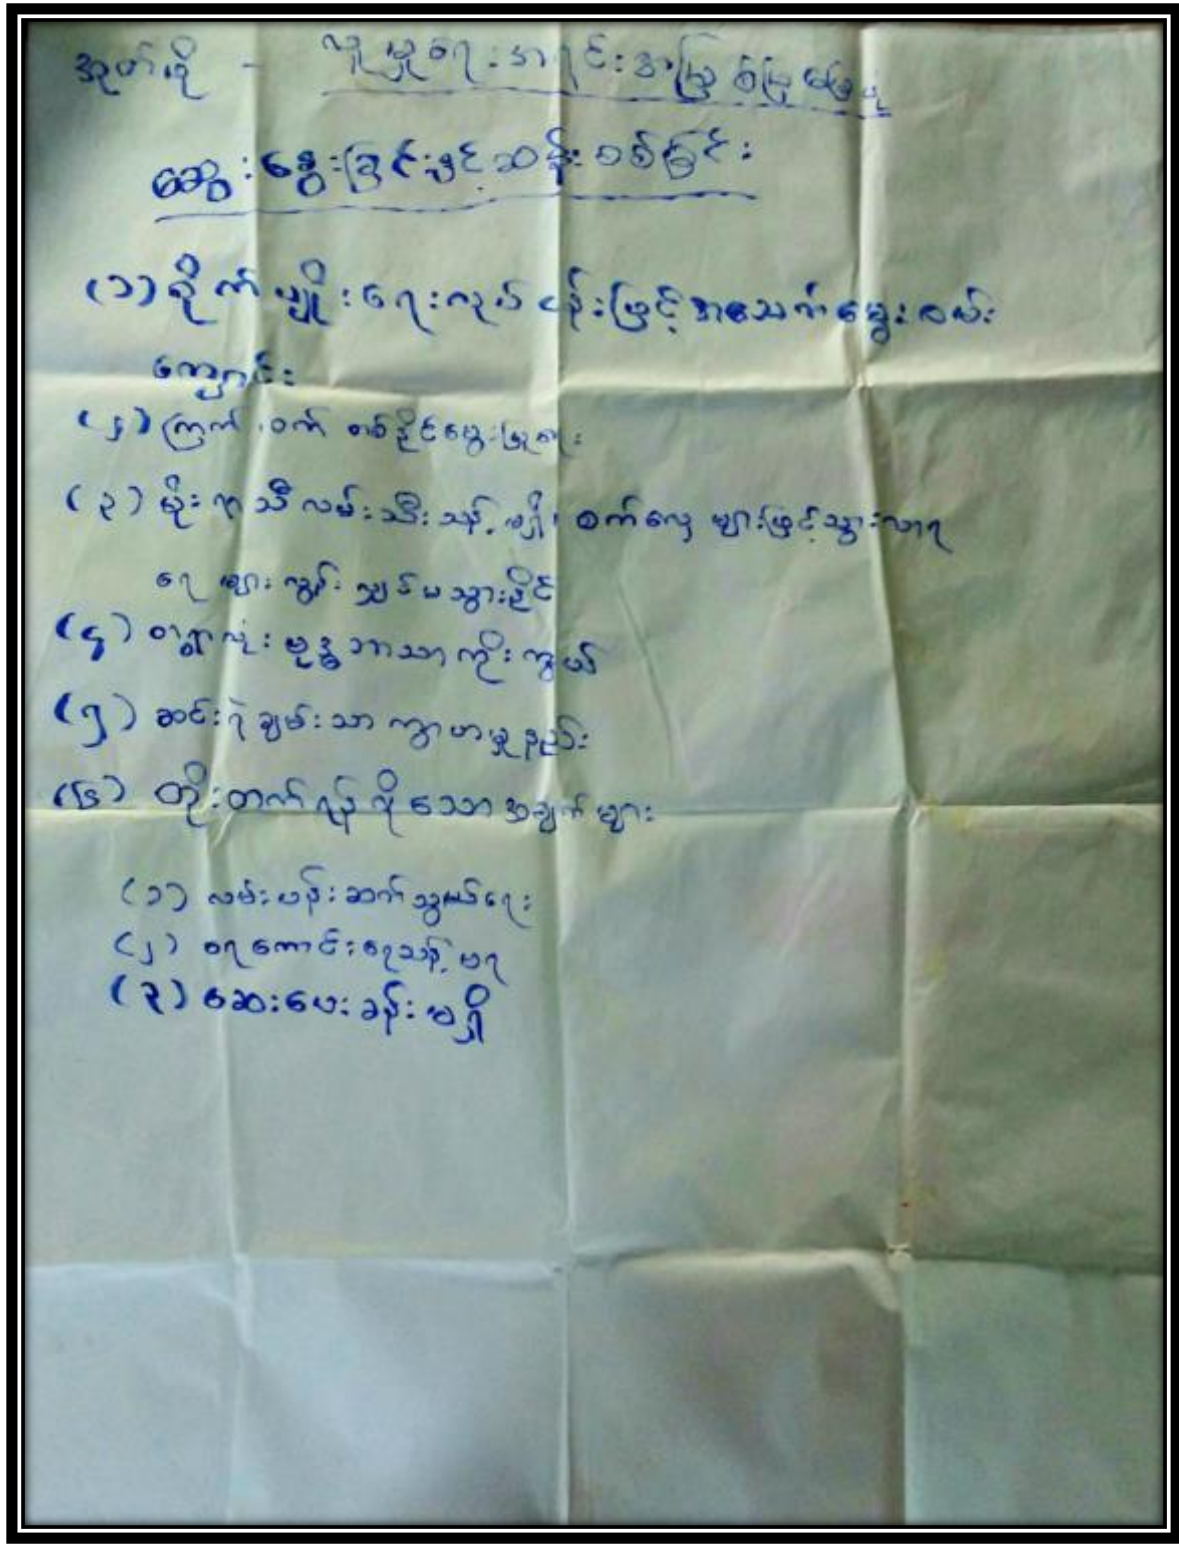 အုတ်ဖို - လူမှုရေးအရင်းအမြစ်ပြမြေပုံ
ဆွေးနွေးခြင်းနှင့်ဆန်းစစ်ခြင်း
(၁) စိုက်ပျိုးရေးလုပ်ငန်းဖြင့်အသက်မွေးဝမ်း
ကျောင်း
(၂) ကြက်၊ ဝက် တစ်နိုင်မွေးမြူရေး
(၃) မိုးရာသီလမ်းသီးသန့်မရှိ၊ စက်လှေများဖြင့်သွားလာရ
ရေများလွန်းလျှင်မသွားနိုင်
(၄) တရွာလုံးဗုဒ္ဓဘာသာကိုးကွယ်
(၅) ဆင်းရဲချမ်းသာကွာဟမှုနည်း
(၆) တိုးတက်ရန်လိုသောအချက်များ
(၁) လမ်းပန်းဆက်သွယ်ရေး
(၂) ရေကောင်းရေသန့်မရ
(၃) ဆေးပေးခန်းမရှိ